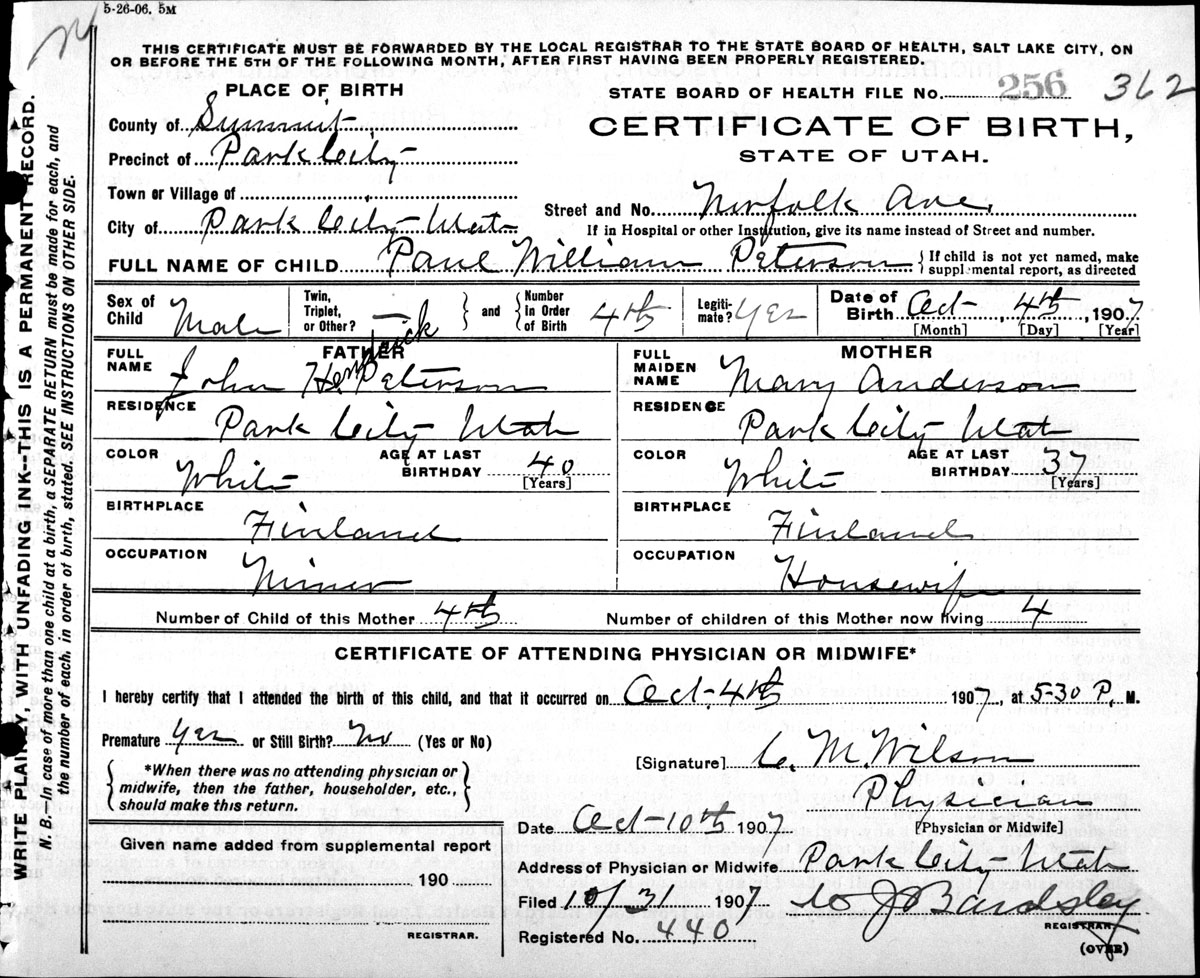 5-26-06. 5M
THIS CERTIFICATE MUST BE FORWARDED BY THE LOCAL REGISTRAR TO THE STATE BOARD OF HEALTH, SALT LAKE CITY, ON
OR BEFORE THE 5TH OF THE FOLLOWING MONTH, AFTER FIRST HAVING BEEN PROPERLY REGISTERED.
PLACE OF BIRTH
STATE BOARD OF HEALTH FILE No. 256 362
County of Summit
CERTIFICATE OF BIRTH,
Precinct of Park City
STATE OF UTAH.
Town or Village of
City of Park City Utah
Street and No. Norfolk Ave.
If in Hospital or other Institution, give its name instead of Street and number.
FULL NAME OF CHILD Paul William Peterson { If child is not yet named, make
supplemental report, as directed
Sex of Child Male
Twin, Triplet, or Other? — } and { Number In Order of Birth 4th
Legiti-mate? Yes
Date of Birth Oct. 4th, 1907
[Month] [Day] [Year]
FATHER
FULL NAME John Hendrick Peterson
RESIDENCE Park City Utah
COLOR White AGE AT LAST BIRTHDAY 40
[Years]
BIRTHPLACE Finland
OCCUPATION Miner
MOTHER
FULL MAIDEN NAME Mary Anderson
RESIDENCE Park City Utah
COLOR White AGE AT LAST BIRTHDAY 37
[Years]
BIRTHPLACE Finland
OCCUPATION Housewife
Number of Child of this Mother 4th Number of children of this Mother now living 4
CERTIFICATE OF ATTENDING PHYSICIAN OR MIDWIFE*
I hereby certify that I attended the birth of this child, and that it occurred on Oct. 4th 1907, at 5-30 P. M.
Premature Yes or Still Birth? No (Yes or No)
{ *When there was no attending physician or
midwife, then the father, householder, etc.,
should make this return. }
[Signature] C. M. Wilson
Physician
[Physician or Midwife]
Date Oct-10th 1907
Address of Physician or Midwife Park City-Utah
Filed 10/31 1907 J Bardsley
REGISTRAR.
Registered No. 440
(OVER)
Given name added from supplemental report
190
REGISTRAR.
WRITE PLAINLY, WITH UNFADING INK--THIS IS A PERMANENT RECORD.
N. B.—In case of more than one child at a birth, a SEPARATE RETURN must be made for each, and
the number of each, in order of birth, stated. SEE INSTRUCTIONS ON OTHER SIDE.